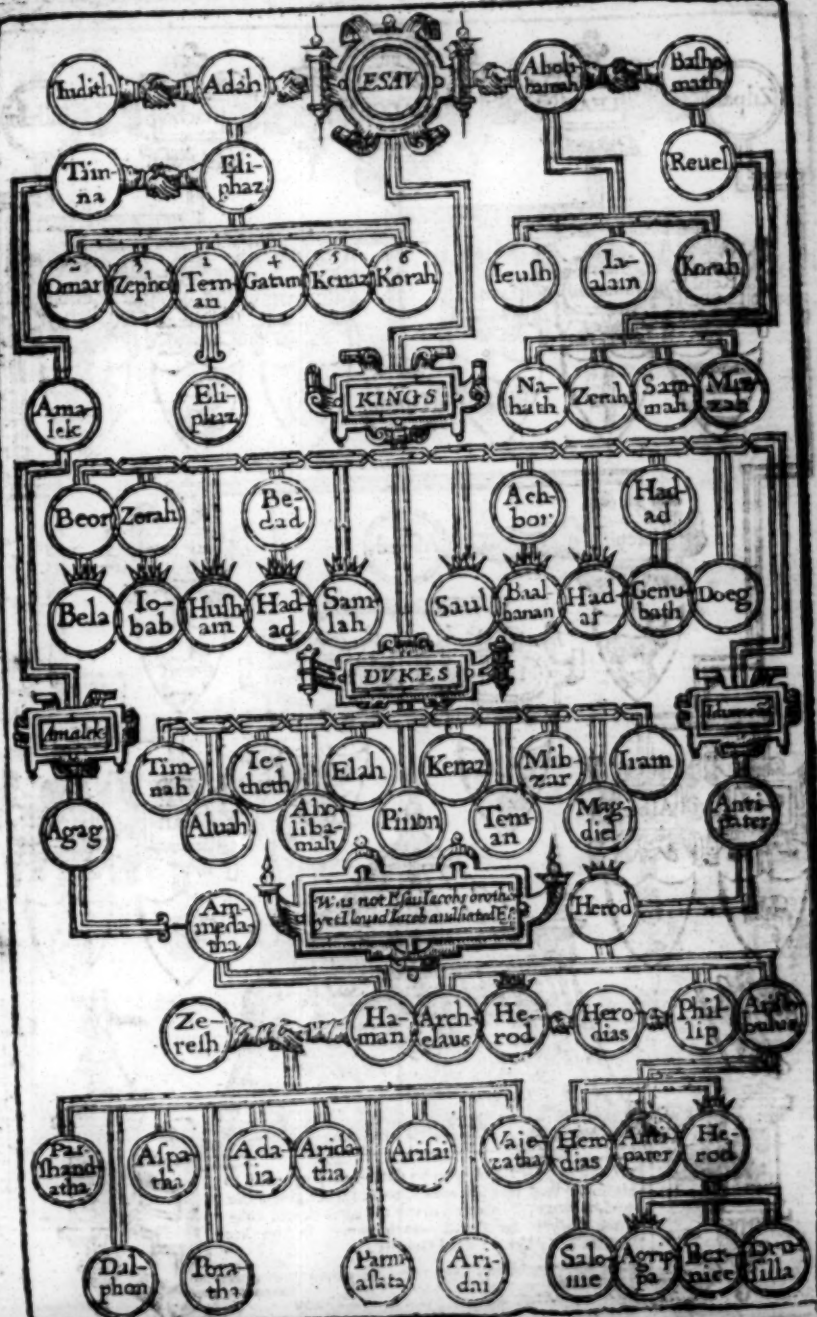 Iudith
Adah
ESAV
Aholi
bamah
Bashe
math
Tim
na
Eli
phaz
Reuel
2
Omar
3
Zepho
1
Tem
an
4
Gatam
5
Kenaz
6
Korah
Ieush
Ia
alam
Korah
Ama
lek
Eli
phaz
KINGS
Na
hath
Zerah
Sam
mah
Miz
zah
Beor
Zerah
Be
dad
Ach
bor
Had
ad
Bela
Io
bab
Hush
am
Had
ad
Sam
lah
Saul
Baal
hanan
Had
ar
Genu
bath
Doeg
DVKES
Amalek
Tim
nah
Ie
theth
Elah
Kenaz
Mib
zar
Iram
Aluah
Aho
liba
mah
Pinon
Tem
an
Mag
diel
Agag
Anti
pater
Was not Esau Iacobs brother
yet I loued Iacob and hated Es
Herod
Am
meda
tha
Ze
resh
Ha
man
Arch
elaus
He
rod
Hero
dias
Phil
lip
Arist
bulus
Par
shand
atha
Aspa
tha
Ada
lia
Arida
tha
Arisai
Vaje
zatha
Hero
dias
Anti
pater
He
rod
Dal
phon
Pora
tha
Parm
asata
Ari
dai
Salo
me
Agrip
pa
Ber
nice
Dru
silla